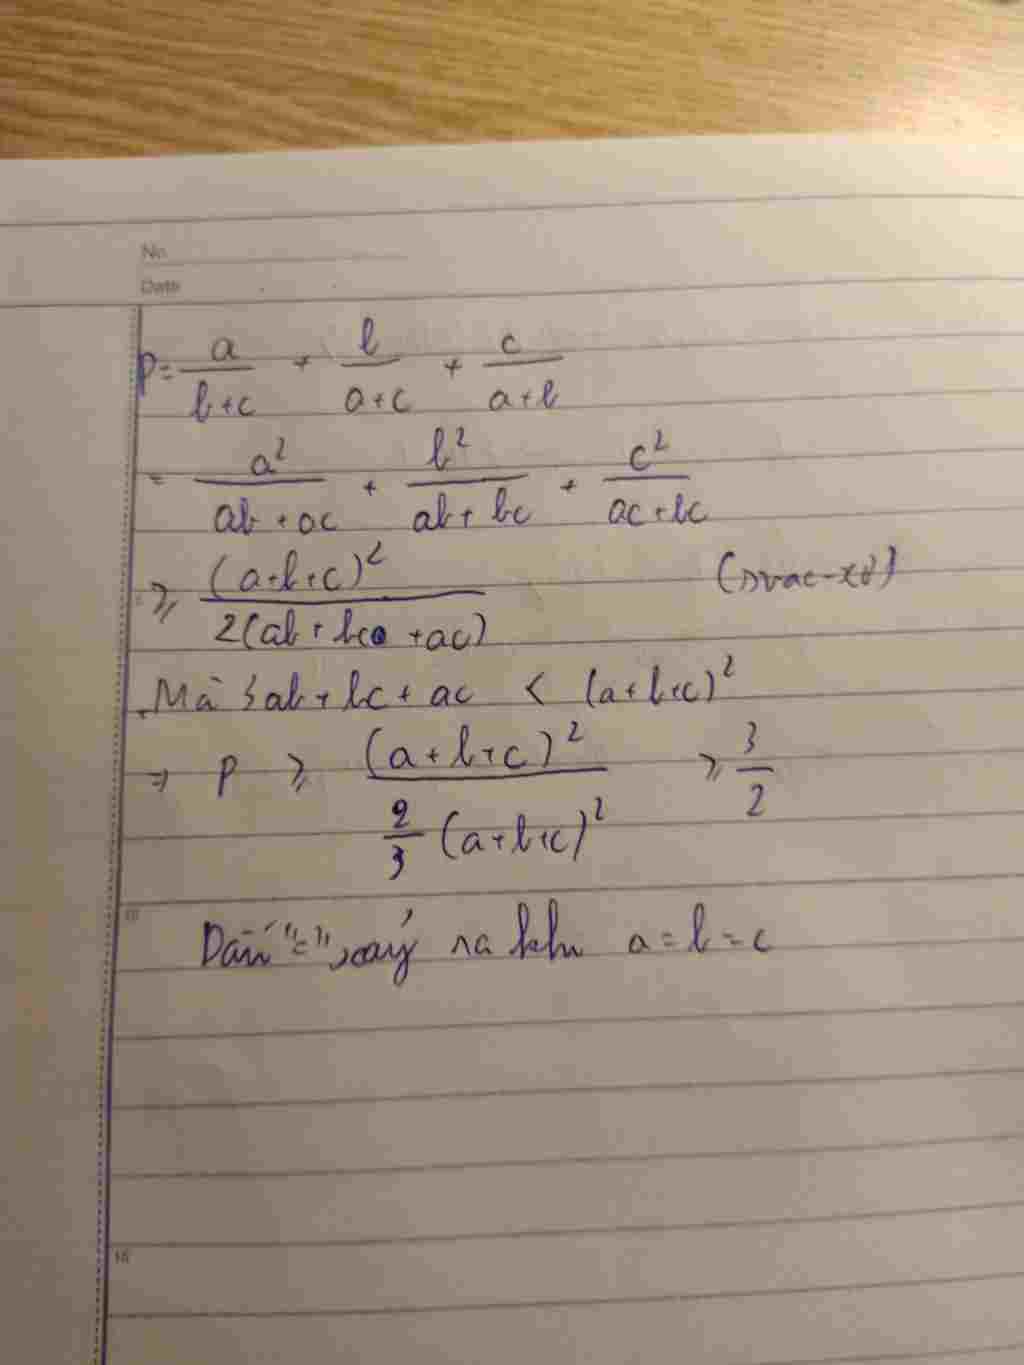 No.
Date
P = a/(b+c) + b/(a+c) + c/(a+b)
= a²/(ab+ac) + b²/(ab+bc) + c²/(ac+bc)
≥ (a+b+c)²/2(ab+bc+ac) (svac-xơ)
Mà 3ab+bc+ac < (a+b+c)²
⇒ P ≥ (a+b+c)²/(2/3 (a+b+c)²) ≥ 3/2
10
Dấu "=" xảy ra khi a = b = c
15